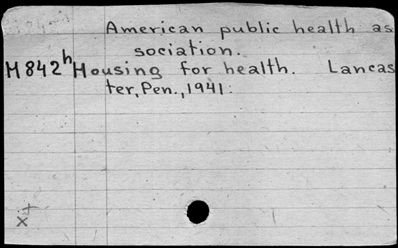 American public health as
sociation.
M842h Housing for health. Lancas
ter, Pen., 1941.
x
x